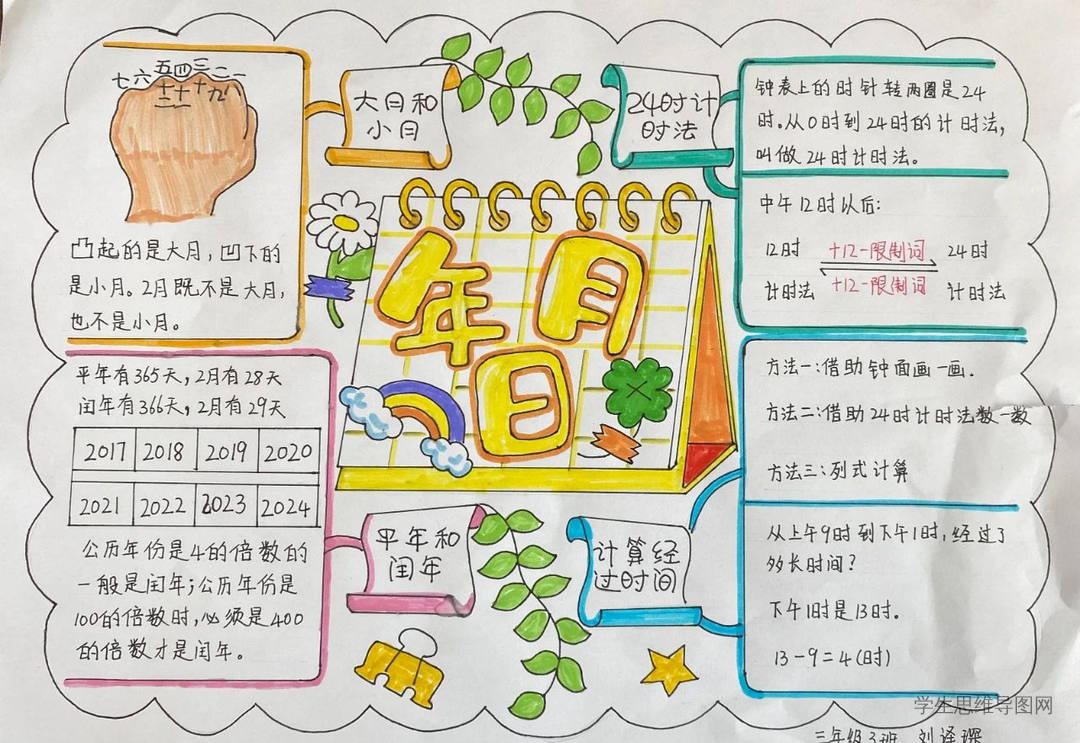 七六五四三二一
十二十一十九八
大月和
小月
凸起的是大月，凹下的
是小月。2月既不是大月，
也不是小月。
24时计
时法
钟表上的时针转两圈是24
时。从0时到24时的计时法，
叫做24时计时法。
中午12时以后：
12时 +12-限制词 24时
计时法 +12-限制词 计时法
年月
日
平年有365天，2月有28天
闰年有366天，2月有29天
2017 2018 2019 2020
2021 2022 2023 2024
公历年份是4的倍数的
一般是闰年；公历年份是
100的倍数时，必须是400
的倍数才是闰年。
平年和
闰年
计算经
过时间
方法一：借助钟面画一画.
方法二：借助24时计时法数一数
方法三：列式计算
从上午9时到下午1时，经过了
多长时间？
下午1时是13时.
13-9=4(时)
学生思维导图网
三年级3班 刘译